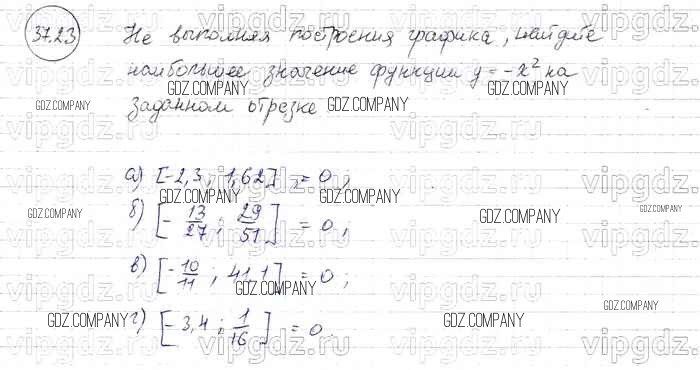 37.23 Не выполняя построения графика, найдите
наибольшее значение функции y = -x² на
заданном отрезке
а) [-2,3 ; 1,62] = 0 ;
б) [-13/27 ; 29/51] = 0 ;
в) [-10/11 ; 41,1] = 0 ;
г) [-3,4 ; 1/16] = 0.
GDZ.COMPANY
vipgdz.ru